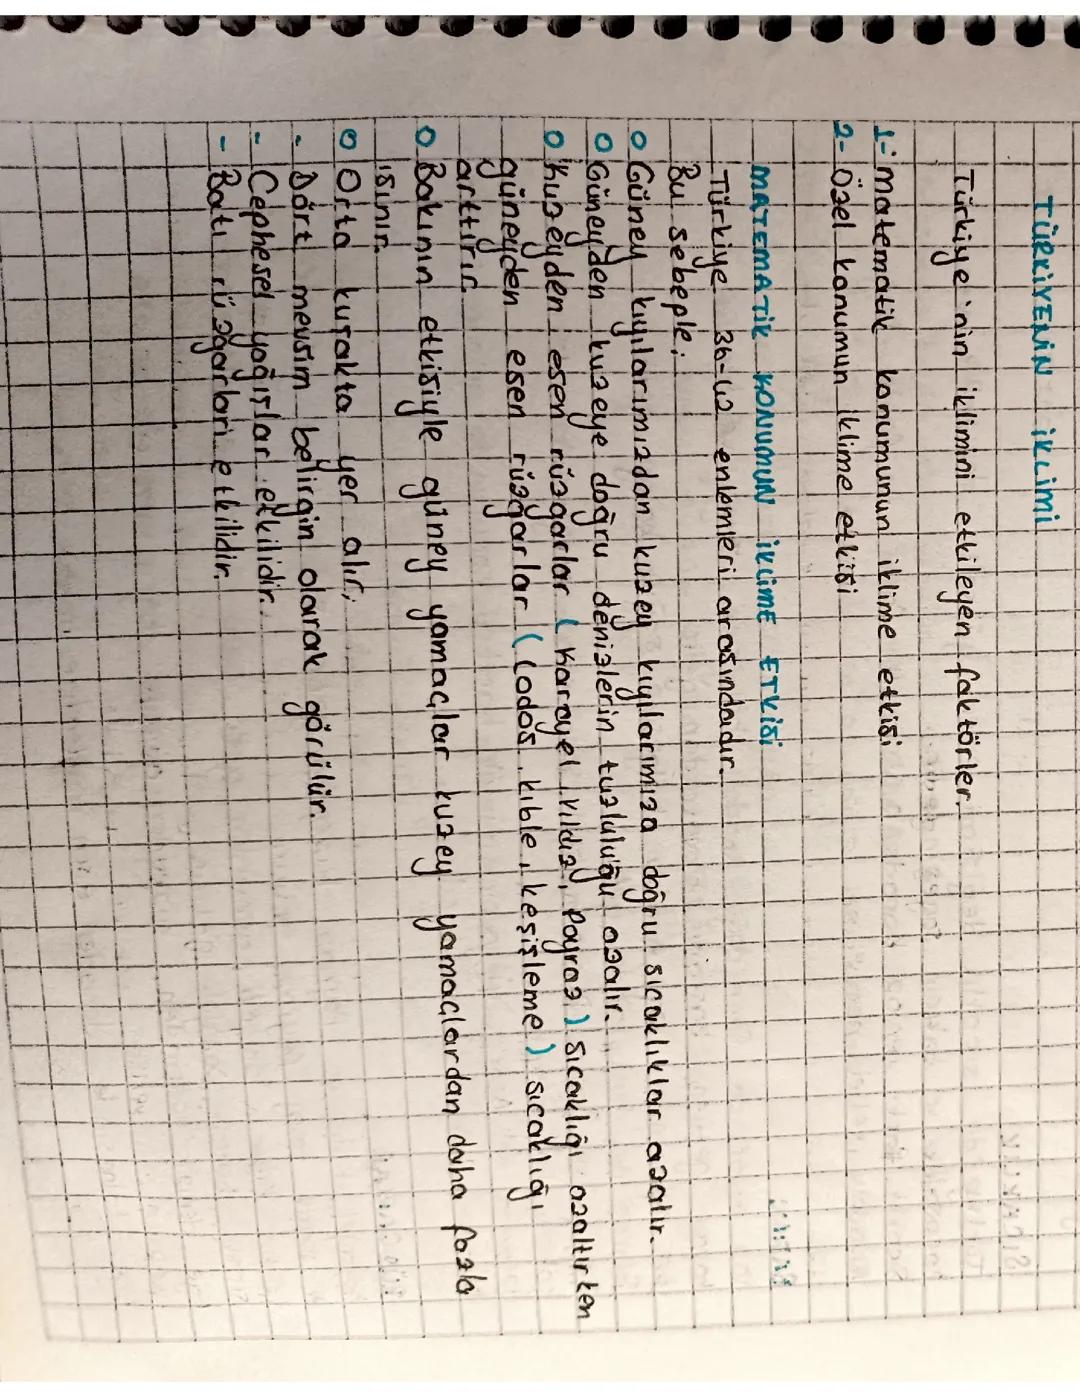 TÜRKİYENİN İKLİMİ
Türkiye'nin iklimini etkileyen faktörler.
1- matematik konumunun iklime etkisi
2- Özel konumun iklime etkisi
MATEMATİK KONUMUN İKLİME ETKİSİ
Türkiye 36-42 enlemleri arasındadır.
Bu sebeple;
o Güney kıyılarımızdan kuzey kıyılarımıza doğru sıcaklıklar azalır.
o Güneyden kuzeye doğru denizlerin tuzluluğu azalır.
o Kuzeyden esen rüzgarlar (Karayel, Yıldız, Poyraz) sıcaklığı azaltırken
güneyden esen rüzgarlar (Lodos, kıble, keşişleme) sıcaklığı
arttırır.
o Bakının etkisiyle güney yamaçlar kuzey yamaçlardan daha fazla
ısınır.
o Orta kuşakta yer alır;
- Dört mevsim belirgin olarak görülür.
- Cephesel yağışlar etkilidir.
- Batı rüzgarları etkilidir.